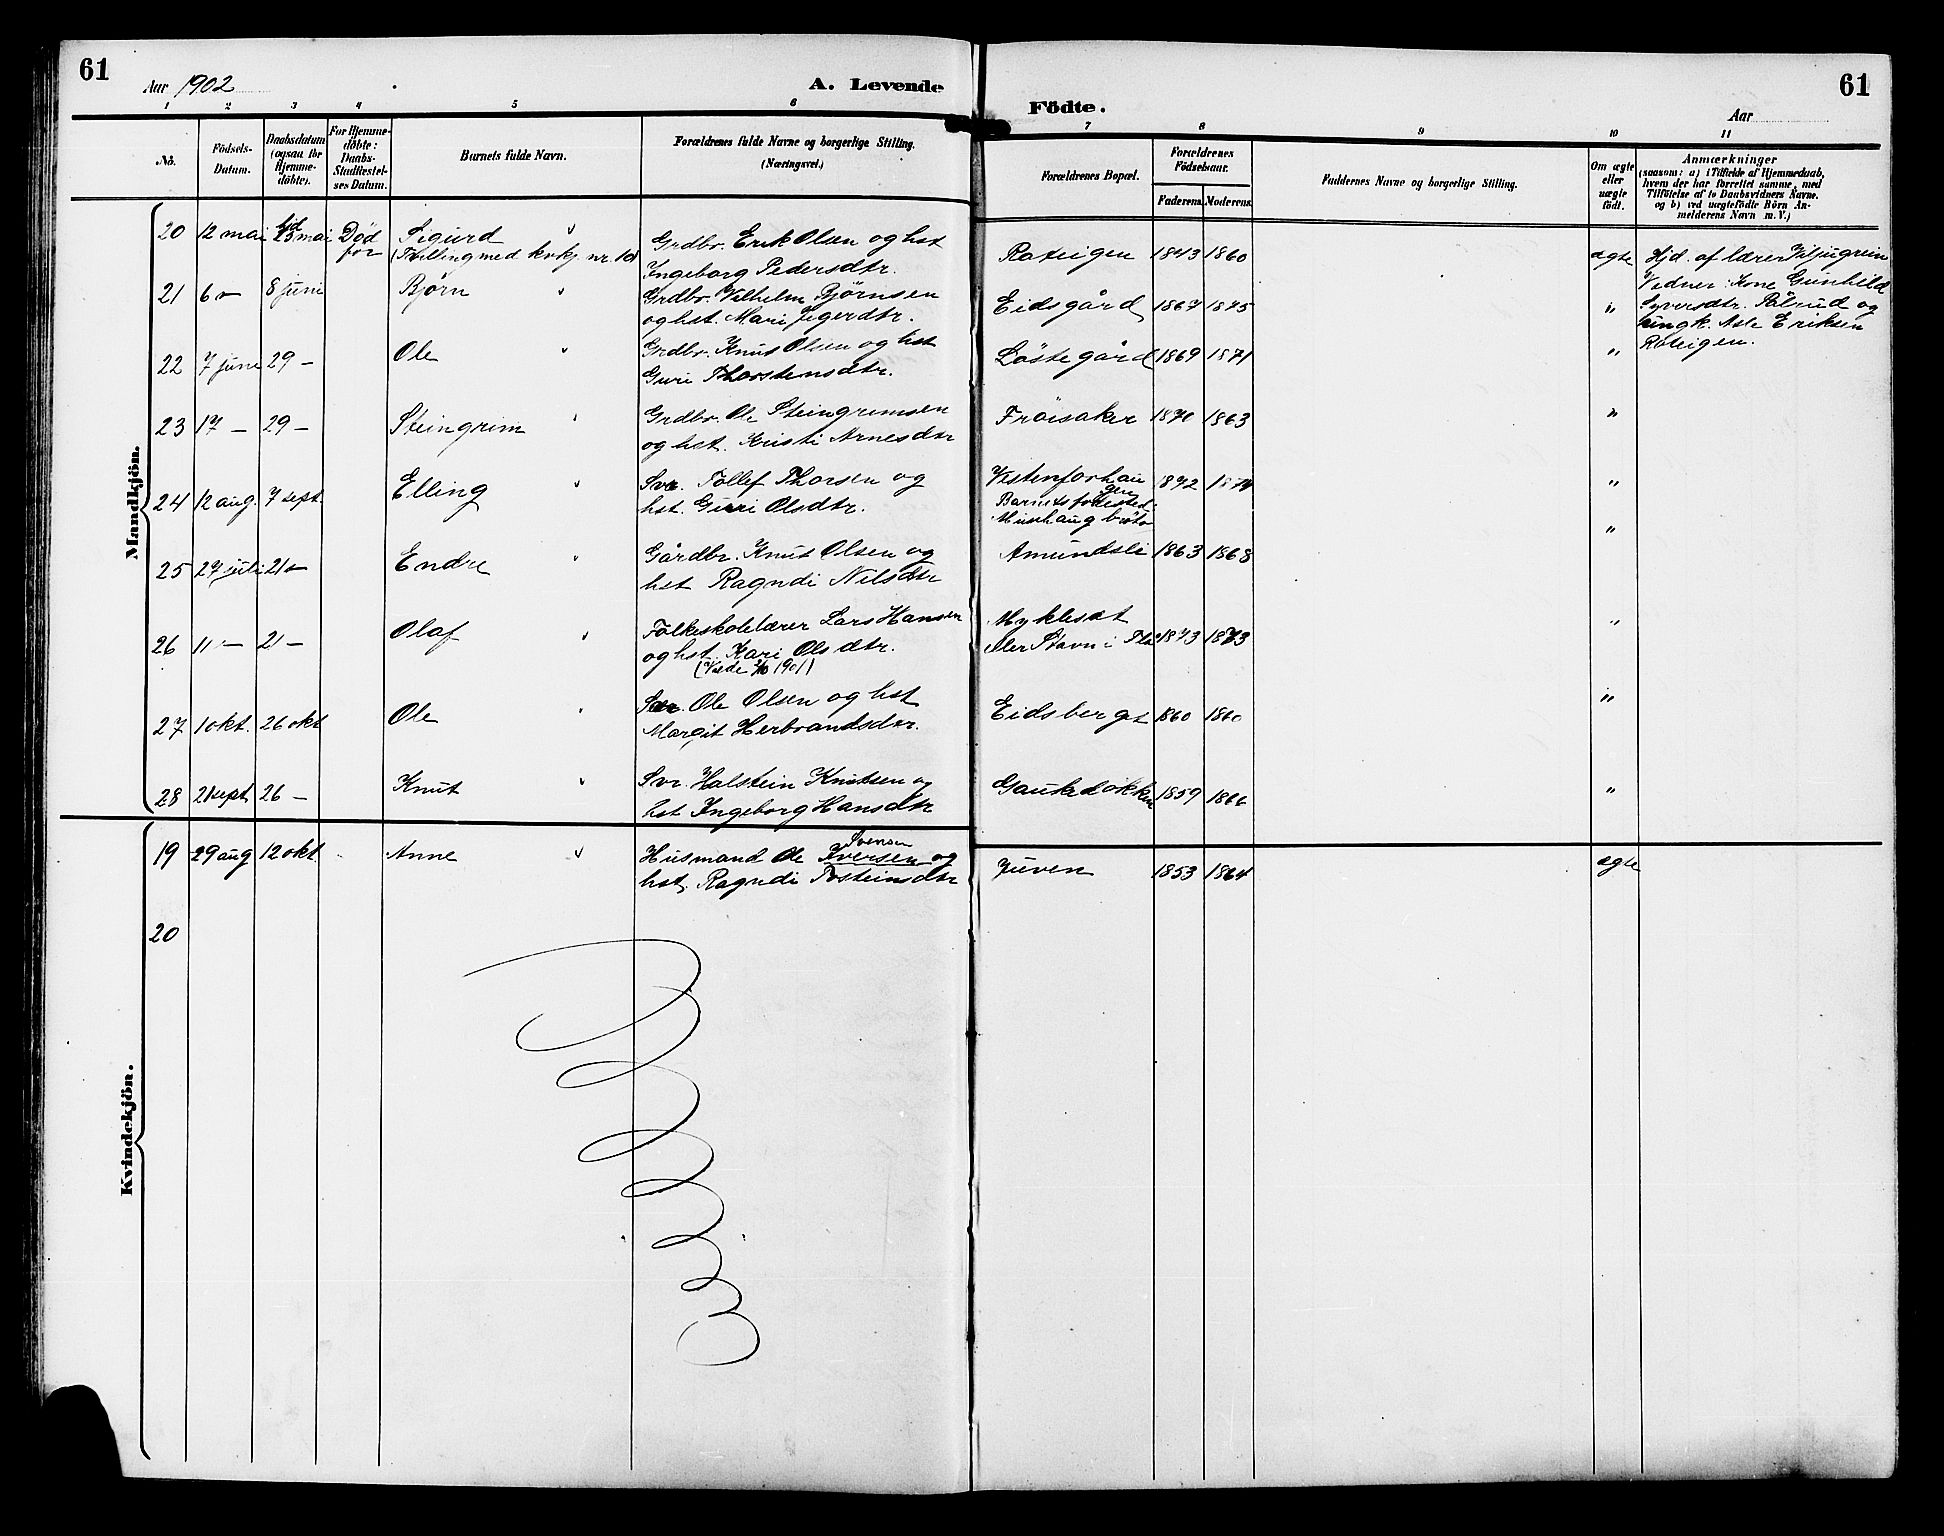 61
Aar 1902
A. Levende
Födte.
Aar
61
1 2 3 4 5 6 7 8 9 10 11
No.
Födsels-
Datum.
Daabsdatum
(ogsaa for
Hjemme-
døbte).
For Hjemme-
døbte:
Daabs-
Stadfæstel-
ses Datum.
Barnets fulde Navn.
Forældrenes fulde Navne og borgerlige Stilling.
(Næringsvei.)
Forældrenes Bopæl.
Forældrenes
Födselsaar.
Faderens.
Moderens.
Faddernes Navne og borgerlige Stilling.
Om ægte
eller
uægte
født.
Anmærkninger
(saasom: a) i Tilfælde af Hjemmedaab,
hvem der har forrettet samme, med
Tilføielse af to Daabsvidners Navne.
og b) ved uægtefödte Börn An-
melderens Navn m. V.)
Mandkjön.
20 12 mai hjd 23 mai Død før Sigurd
(Tvilling med kvkj. nr. 10)
Grdbr. Erik Olsen og hst
Ingeborg Pedersdtr.
Roteigen 1843 1860 ægte
Hjd. af lærer Viljugrein
Vidner: Kone Gunhild
Syversdtr. Pålrud og
ungk. Asle Eriksen
Roteigen.
21 6 - 8 juni Bjørn
Grdbr. Vilhelm Bjørnsen
og hst. Mari Segerdtr.
Eidsgård 1867 1875 "
22 7 june 29 - Ole
Grdbr. Knut Olsen og hst
Guri Thorstensdtr.
Løstegård 1869 1871 "
23 17 - 29 - Steingrim
Grdbr. Ole Steingrimsen
og hst. Kristi Arnesdtr
Frøisaker 1870 1863 "
24 12 aug. 7 sept Elling
Svr. Tollef Thorsen og
hst. Guri Olsdtr.
Vestenforhau
gen 1872 "
Barnets fødested:
25 27 juli 21 - Endre
Gårdbr. Knut Olsen og
hst Ragndi Nilsdtr
Amundsli 1863 1868 "
26 11 - 21 - Olaf
Folkeskolelærer Lars Hansen
og hst. Kari Olsdtr.
(Viede 1901)
Myklesæt
eller Stavn i Flå 1873 1873 "
27 1 okt. 26 okt Ole
Svr. Ole Olsen og hst
Margit Herbrandsdtr.
Eidsberget 1860 1860 "
28 21 sept 26 - Knut
Svr. Halstein Knutsen og
hst Ingeborg Hansdtr
Gaukedokken 1859 1866 "
Kvindekjön.
19 29 aug 12 okt Anne
Svensen
Husmand Ole Iversen og
hst. Ragndi Tosteinsdtr
Juven 1853 1864 ægte
20